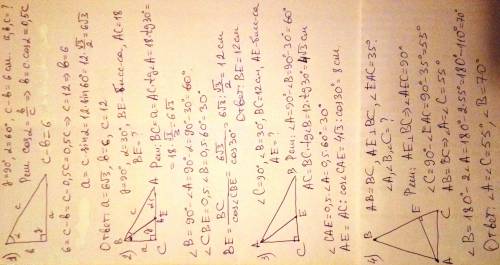 γ=90°, α=60°, c-b=6 см. a,b,c=?
Реш. cosα=b/c ⇒ b=c·cosα=0,5c
6=c-b=c-0,5c=0,5c ⇒ c=12 ⇒ b=6
a=c·sinα=12·sin60°=12·√3/2=6√3
Ответ: a=6√3, b=6, c=12
1)
B
c
a
b
c-b=6
2) γ=90°, ∠A=30°, BE-бис-са, AC=18
BE=?
Реш: BC=a=AC·tgA=18·tg30°=
=18·√3/3=6√3
∠B=90°-∠A=90°-30°=60°
∠CBE=0,5∠B=0,5·60°=30°
BE=BC/cos∠CBE=6√3/cos30°=6√3/(√3/2)=12 см
Ответ: BE=12 см
B
C
E
A
3) ∠C=90°, ∠B=30°, BC=12 см, AE-бис-са
AE=?
Реш: ∠A=90°-∠B=90°-30°=60°
AC=BC·tgB=12·tg30°=4√3 см
∠CAE=0,5·∠A=0,5·60°=30°
AE=AC:cos∠CAE=4√3:cos30°=8 см.
B
E
C
A
4) AB=BC, AE⊥BC, ∠EAC=35°
∠A,∠B,∠C=?
Реш: AE⊥BC ⇒ ∠AEC=90°
∠C=90°-∠EAC=90°-35°=55°
AB=BC ⇒ ∠A=∠C=55°
∠B=180°-2∠A=180°-2·55°=180°-110°=70°
Ответ: ∠A=∠C=55°, ∠B=70°
B
E
C
A